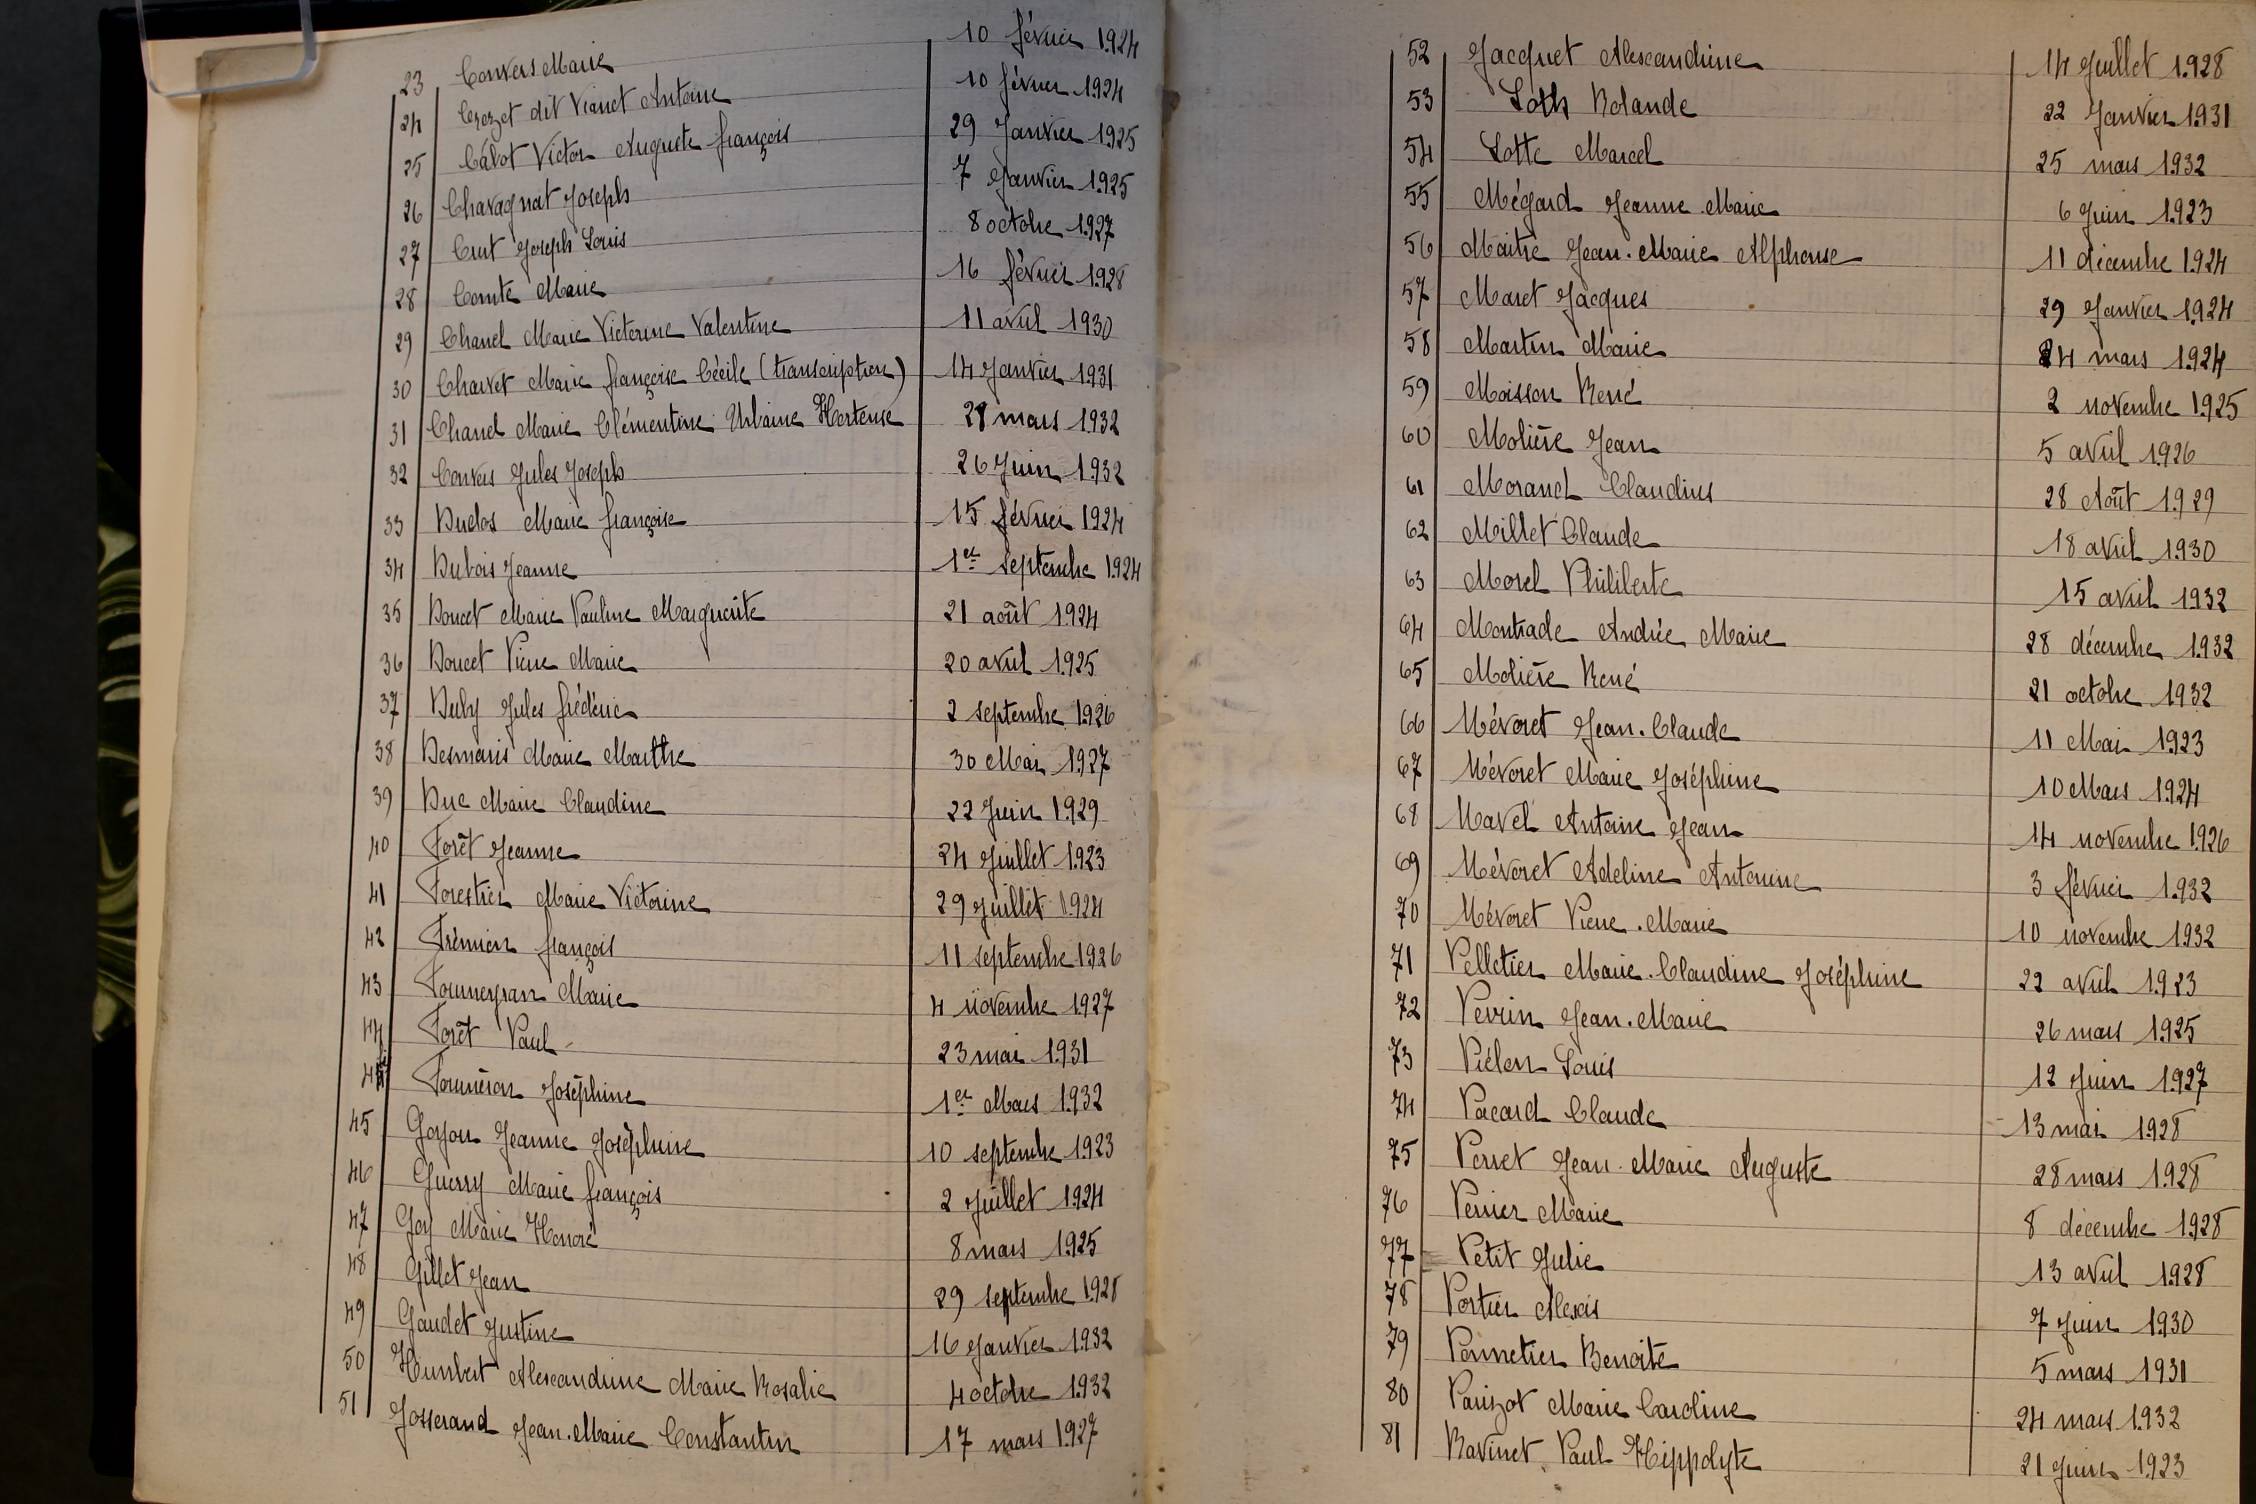 23 Convers Marie 10 février 1924
24 Crozet dit Vianet Antoine 10 février 1924
25 Cabot Victor Auguste françois 29 Janvier 1925
26 Chavagnat Joseph 7 Janvier 1925
27 Curt Joseph Louis 8 octobre 1927
28 Comte Marie 16 février 1928
29 Chanel Marie Victorine Valentine 11 avril 1930
30 Charvet Marie françoise Cécile (transcription) 14 Janvier 1931
31 Chanel Marie Clémentine Urbaine Hortense 21 mars 1932
32 Convers Jules Joseph 26 Juin 1932
33 Duclos Marie françoise 15 février 1924
34 Dubois Jeanne 1er septembre 1924
35 Doucet Marie Pauline Marguerite 21 août 1924
36 Doucet Pierre Marie 20 avril 1925
37 Duby Jules frédéric 2 septembre 1926
38 Desmaris Marie Marthe 30 Mai 1927
39 Duc Marie Claudine 22 Juin 1929
40 Forêt Jeanne 24 Juillet 1923
41 Forestier Marie Victorine 29 Juillet 1924
42 Frémion françois 11 septembre 1926
43 Fourneyran Marie 4 novembre 1927
44 Forêt Paul 23 mai 1931
44 Fournéron Joséphine 1er Mars 1932
45 Goyon Jeanne Joséphine 10 septembre 1923
46 Guerry Marie françois 2 Juillet 1924
47 Goy Marie Honoré 8 mars 1925
48 Gillet Jean 29 septembre 1928
49 Gaudet Justine 16 Janvier 1932
50 Humbert Alexandrine Marie Rosalie 4 octobre 1932
51 Josserand Jean.Marie Constantin 17 mars 1927
52 Jacquet Alexandrine 14 Juillet 1928
53 Loth Rolande 22 Janvier 1931
54 Lotte Marcel 25 mars 1932
55 Mégard Jeanne.Marie 6 Juin 1923
56 Maitre Jean.Marie Alphonse 11 décembre 1924
57 Maret Jacques 29 Janvier 1924
58 Martin Marie 24 mars 1924
59 Moisson René 2 novembre 1925
60 Molière Jean 5 avril 1926
61 Morand Claudius 28 Août 1929
62 Millet Claude 18 avril 1930
63 Morel Philiberte 15 avril 1932
64 Montrade Andrée Marie 28 décembre 1932
65 Molière René 21 octobre 1932
66 Névoret Jean.Claude 11 Mai 1923
67 Névoret Marie Joséphine 10 Mars 1924
68 Navel Antoine Jean 14 novembre 1926
69 Névoret Adeline Antonine 3 février 1932
70 Névoret Pierre.Marie 10 novembre 1932
71 Pelletier Marie.Claudine Joséphine 22 avril 1923
72 Perrin Jean.Marie 26 mars 1925
73 Piélon Louis 12 Juin 1927
74 Pacard Claude 13 mai 1928
75 Perret Jean.Marie Auguste 28 mars 1928
76 Perrier Marie 8 décembre 1928
77 Petit Julie 13 avril 1928
78 Portier Alexis 7 Juin 1930
79 Ponnetier Benoite 5 mars 1931
80 Parizot Marie Caroline 24 mars 1932
81 Ravinet Paul Hippolyte 21 Juin 1923